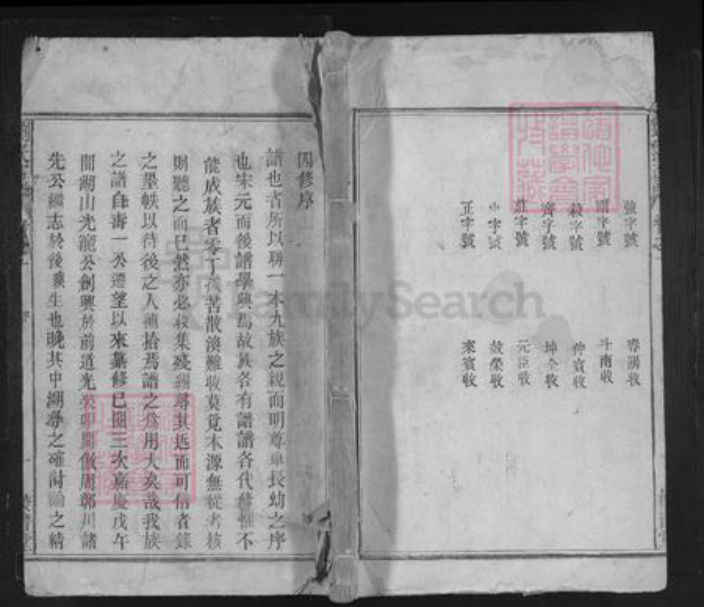 強字號 春陽收
剛字號 斗南收
毅字號 仲寶收
齊字號 坤全收
莊字號 元臣收
中字號 效榮收
正字號 來賓收
四修序
譜也者所以聯一本九族之親而明尊卑長幼之序
也宋元而後譜學興焉故族各有譜譜各代修惟不
能成族者零丁孤苦散渙難收莫覓本源無從考核
則聽之而已然亦必敘集殘編尋其近而可信者錄
之墨帙以待後之人補拾焉譜之為用大矣哉我族
之譜自壽一公遷望以來纂修已閱三次嘉慶戊午
間湖山光龍公創興於前道光癸卯間倣周鄣川諸
先公繼志於後㬰生也晚其中湖尋之確討論之精
FamilySearch